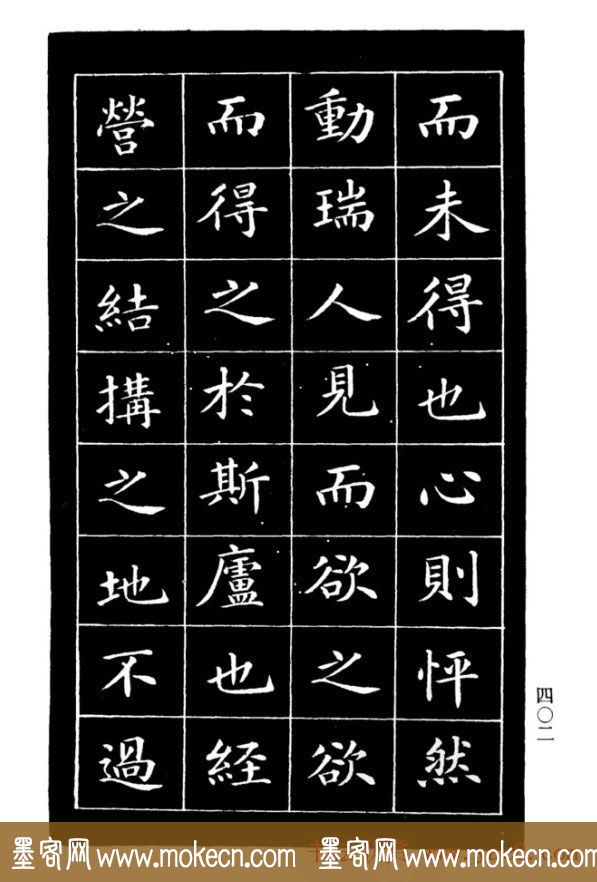 而未得也心則怦然
動瑞人見而欲之欲
而得之於斯廬也経
營之結搆之地不過
四〇二
墨客网 www.mokecn.com 墨客网 www.mokecn.com 墨客网 www.mokecn.com